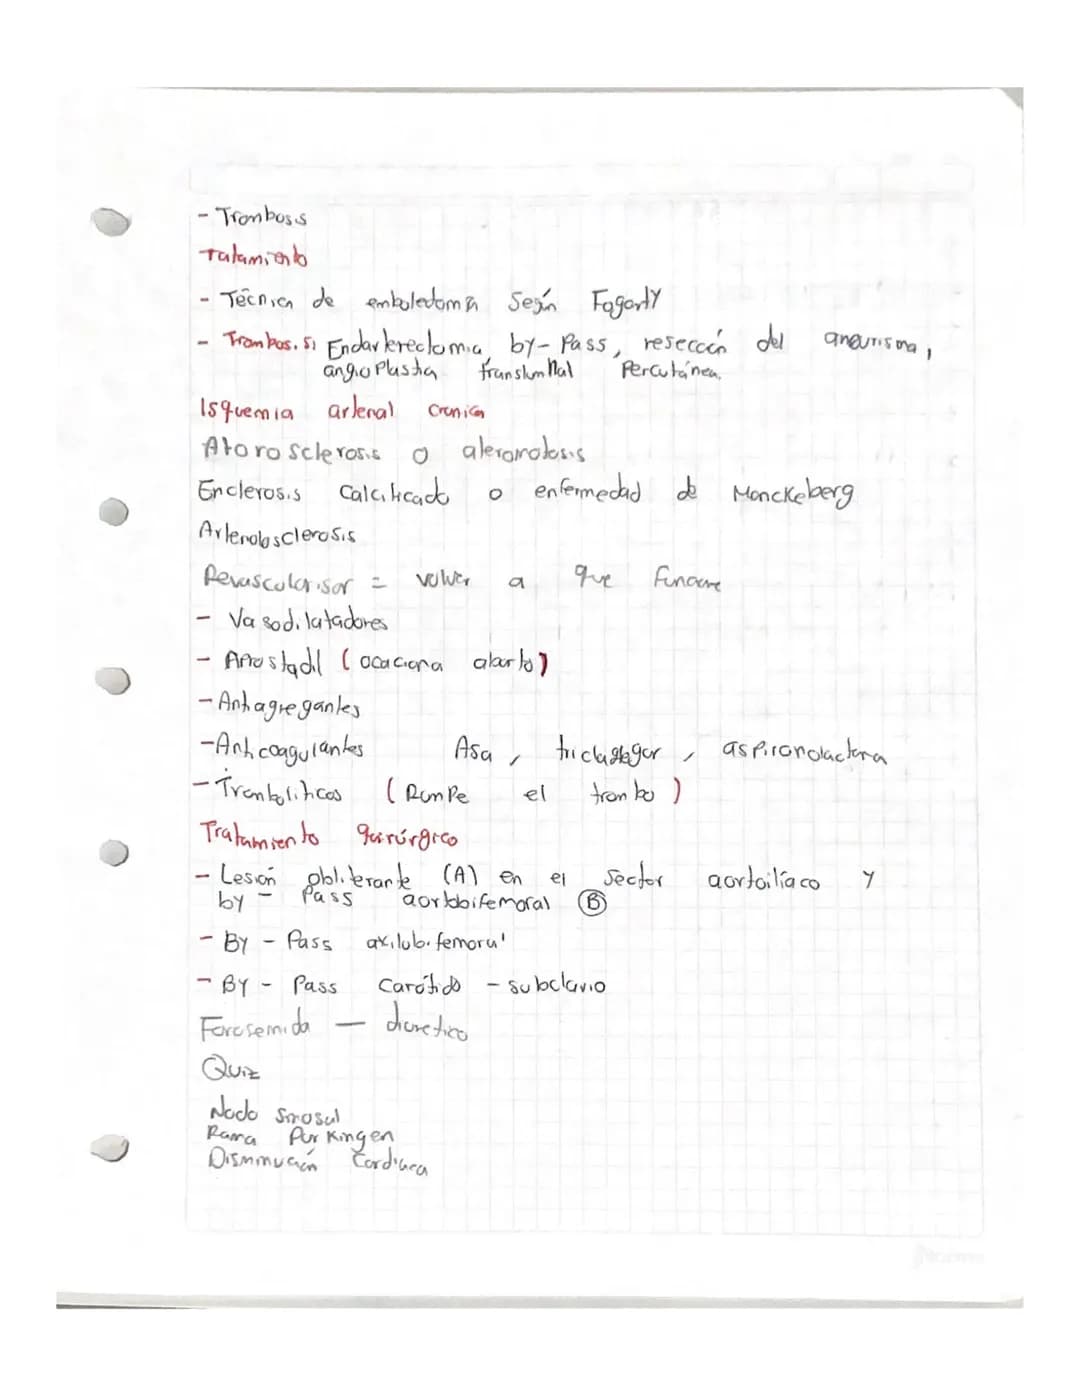 - Trombosis
Tratamiento
- Técnica de emboledomia Según Fogarty
- Trombosis: Endarterectomia, by-Pass, resección del aneurisma,
angioplastia transluminal Percutánea.
Isquemia arterial cronica
Aterosclerosis o ateromatosis
Enclerosis Calcificado o enfermedad de Monckeberg
Arteriolosclerosis
Revascularisar = volver a que funcione
- Vasodilatadores
- Aprostadil (ocaciona aborto)
- Antiagregantes
- Anticoagulantes Asa, triclaglagor, aspironolactona
- Trombolíticos (Rompe el trombo)
Tratamiento quirúrgico
- Lesión obliterante (A) en el Sector aortoilíaco y
by - Pass aortobifemoral (B)
- By - Pass axilobifemoral
- By - Pass Carótido - subclavio
Forosemida — diuretico
Quiz
Nodo Sinosal
Rama Purkingen
Disminución Cardiaca